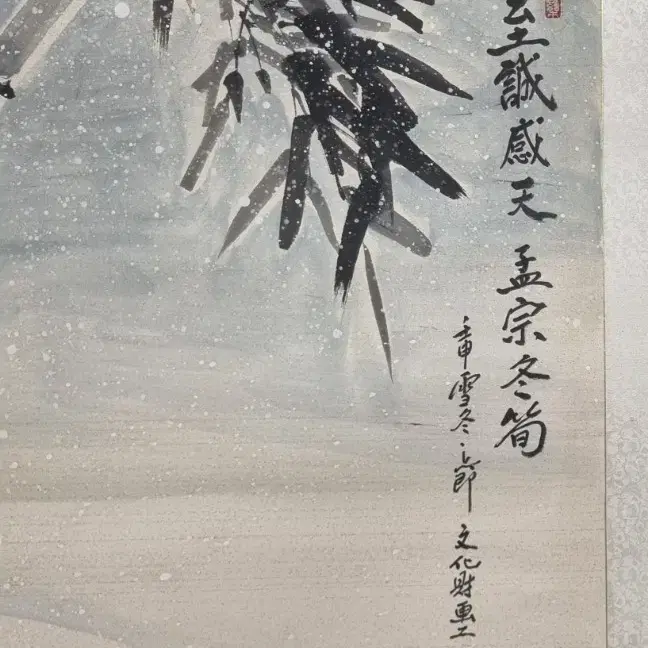 至誠感天 孟宗冬筍
壬申雪冬 節 文化財畫工